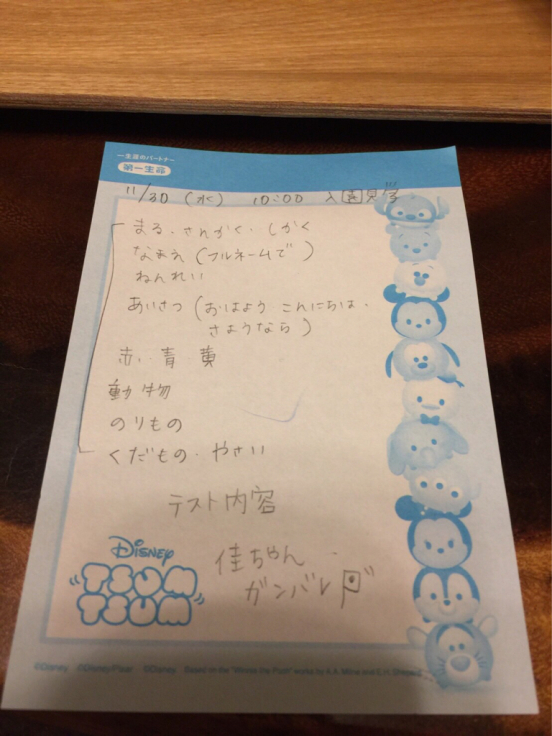 一生涯のパートナー
第一生命
11/30 (水) 10:00 入園見学
まる・さんかく・しかく
なまえ (フルネームで)
ねんれい
あいさつ (おはよう こんにちは・
さようなら)
赤・青 黄
動物
のりもの
くだもの・やさい
テスト内容
佳ちゃん
ガンバレ
Disney
TSUM
TSUM
©Disney ©Disney/Pixar ©Disney. Based on the "Winnie the Pooh" works by A.A. Milne and E.H. Shepard.